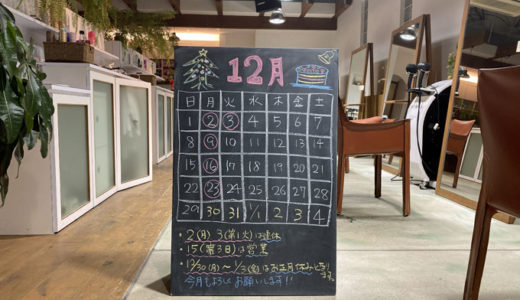 12月
日 月 火 水 木 金 土
1 2 3 4 5 6 7
8 9 10 11 12 13 14
15 16 17 18 19 20 21
22 23 24 25 26 27 28
29 30 31 1/1 2 3 4
・2(月) 3(第1火)は連休
・15(第3日)は営業
・12/30(月)〜1/3(金)はお正月休みとなります。
今月もよろしくお願いします!!